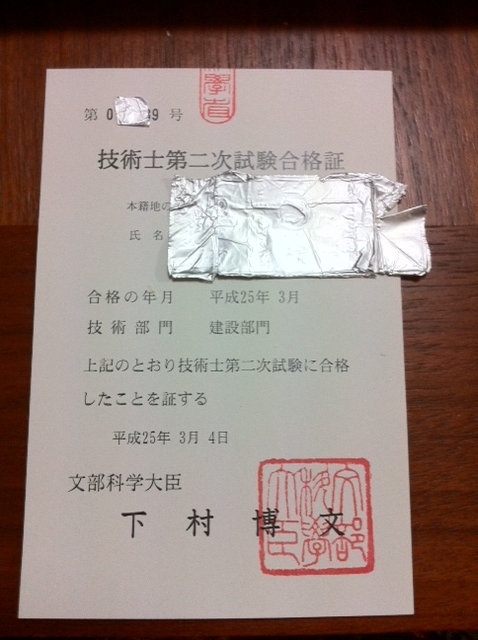 第0 39号
技術士第二次試験合格証
本籍地の
氏名
合格の年月 平成25年 3月
技術部門 建設部門
上記のとおり技術士第二次試験に合格
したことを証する
平成25年 3月 4日
文部科学大臣
下村博文